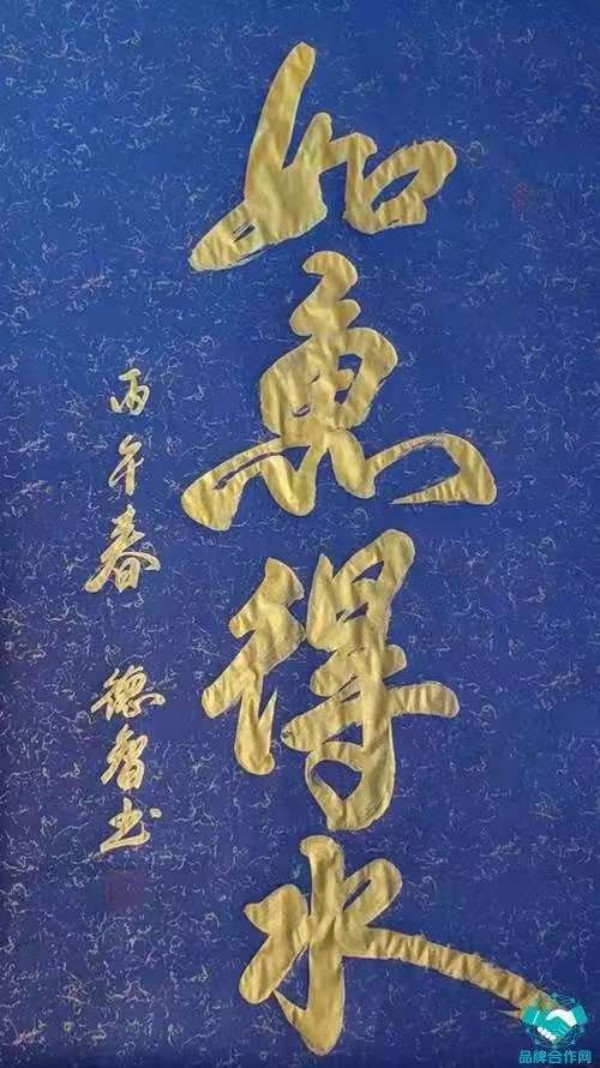 如鱼得水
丙午春 德智书
品牌合作网